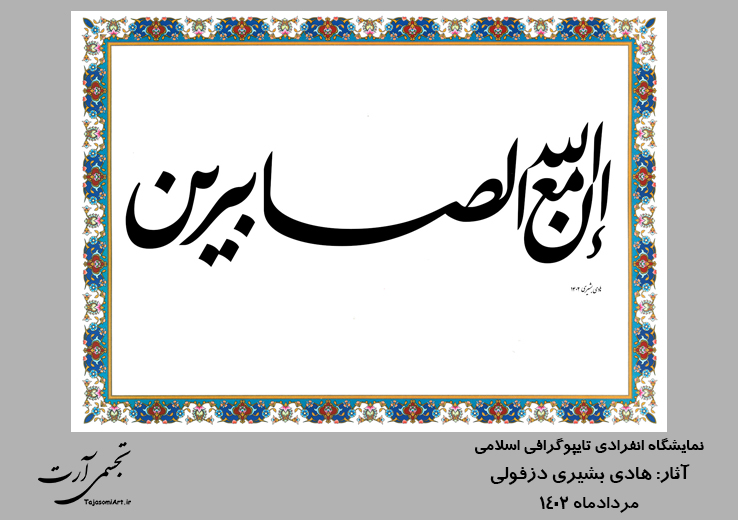 إن الله مع الصابرین
هادی بشیری ۱۴۰۲
نمایشگاه انفرادی تایپوگرافی اسلامی
آثار: هادی بشیری دزفولی
مردادماه ۱۴۰۲
تجسمی آرت
TajasomiArt.ir